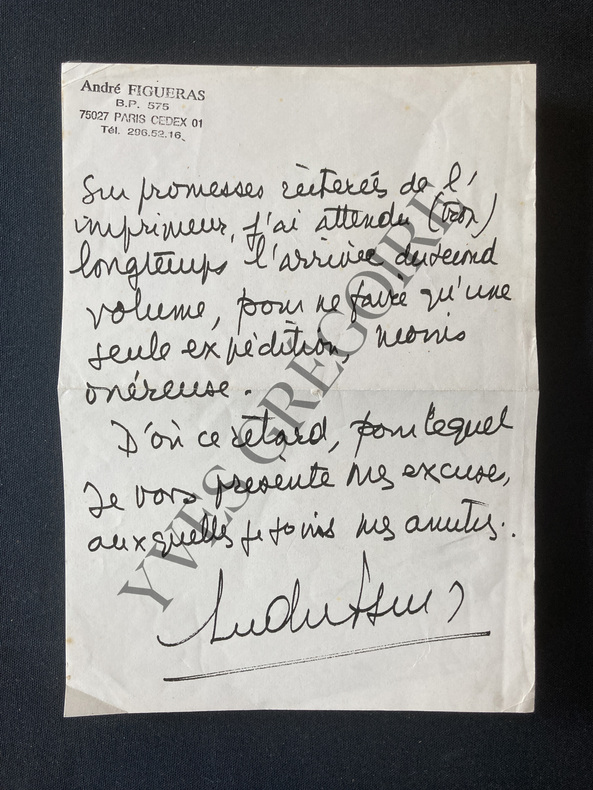 André FIGUERAS
B.P. 575
75027 PARIS CEDEX 01
Tél. 296.52.16
Sur promesses réiterées de l'
imprimeur, j'ai attendu (trop)
longtemps l'arrivée du second
volume, pour ne faire qu'une
seule expédition, moins
onéreuse.
D'où ce retard, pour lequel
Je vous présente mes excuses,
auxquelles je joins mes amitiés.
YVES GREGOIRE